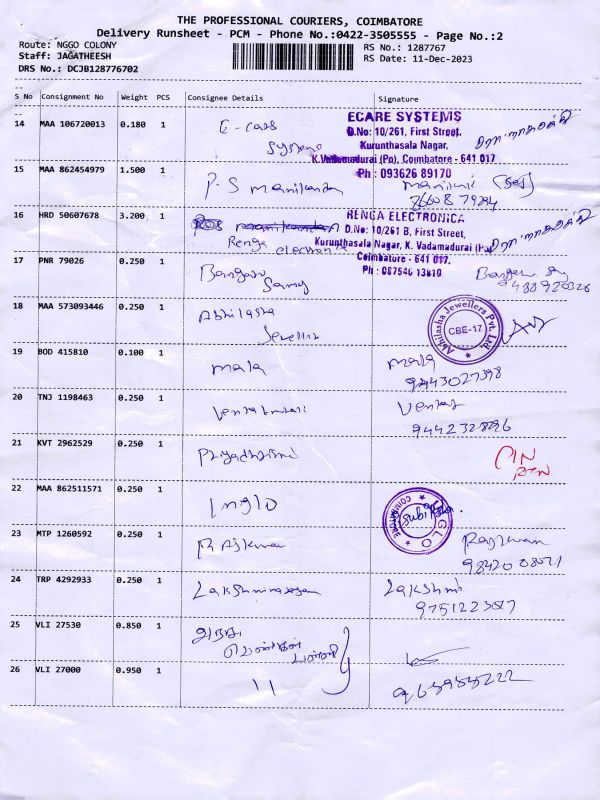 THE PROFESSIONAL COURIERS, COIMBATORE
Delivery Runsheet - PCM - Phone No.:0422-3505555 - Page No.:2
Route: NGGO COLONY
RS No.: 1287767
Staff: JAGATHEESH
RS Date: 11-Dec-2023
DRS No.: DCJB128776702
S No Consignment No Weight PCS Consignee Details Signature
14 MAA 106720013 0.180 1 E-care Systems
ECARE SYSTEMS
D.No: 10/261, First Street,
Kurunthasala Nagar,
K.Vadamadurai (Po), Coimbatore - 641 017
Ph : 093626 89170
15 MAA 862454979 1.500 1 P.S Manikandan
16 HRD 50607678 3.200 1 Renga electronic
RENGA ELECTRONICA
D.No: 10/261 B, First Street,
Kurunthasala Nagar, K. Vadamadurai
Coimbatore - 641 017.
Ph : 087546 13810
17 PNR 79026 0.250 1 Bangaru Samy
18 MAA 573093446 0.250 1 Abhilasha Jewellers
Abhilasha Jewellers Pvt. Ltd.
CBE-17
19 BOD 415810 0.100 1 mala mala
9443027398
20 TNJ 1198463 0.250 1 Venkat
21 KVT 2962529 0.250 1 Priyadharsni
22 MAA 862511571 0.250 1 Inglo
INGLO
COIMBATORE
23 MTP 1260592 0.250 1 Rajkumar
24 TRP 4292933 0.250 1 Lakshminarayan Lakshmi
25 VLI 27530 0.850 1
26 VLI 27000 0.950 1 "